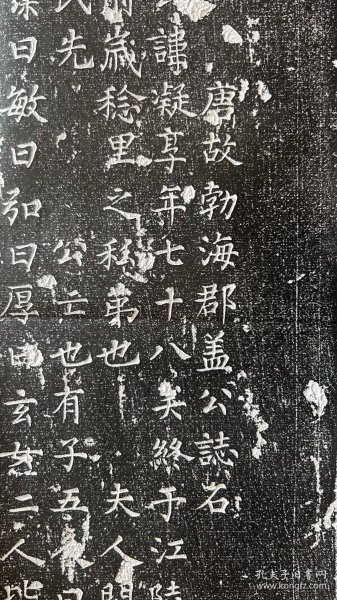 唐故勃海郡盖公誌石
謙凝享年七十八矣終于江陵
歲稔里之私弟也 夫人
氏先 公亡也有子五人曰
曰敏曰弘曰厚曰玄女二人
孔夫子旧书网